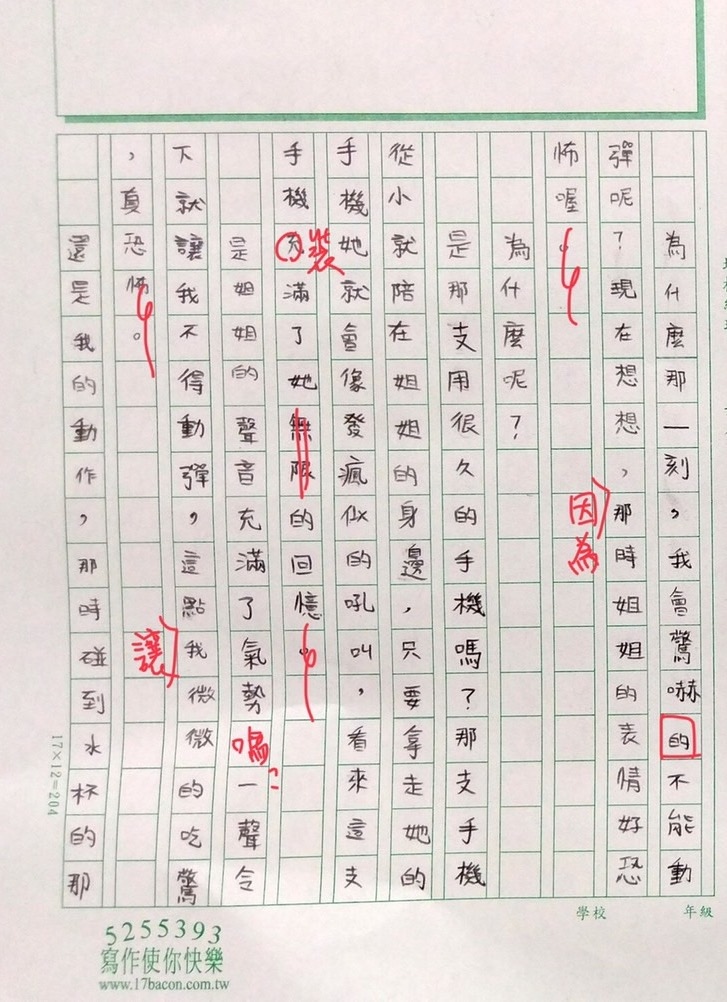 為什麼那一刻，我會驚嚇的不能動
彈呢？現在想想，那時姐姐的表情好恐
因為
怖喔。
為什麼呢？
是那支用很久的手機嗎？那支手機
從小就陪在姐姐的身邊，只要拿走她的
手機她就會像發瘋似的吼叫，看來這支
手機充滿了她無限的回憶。
裝
是姐姐的聲音充滿了氣勢一聲令
嗎
下就讓我不得動彈，這點我微微的吃驚
讓
，真恐怖。
還是我的動作，那時碰到水杯的那
17×12=204
學校
年級
5255393
寫作使你快樂
www.17bacon.com.tw